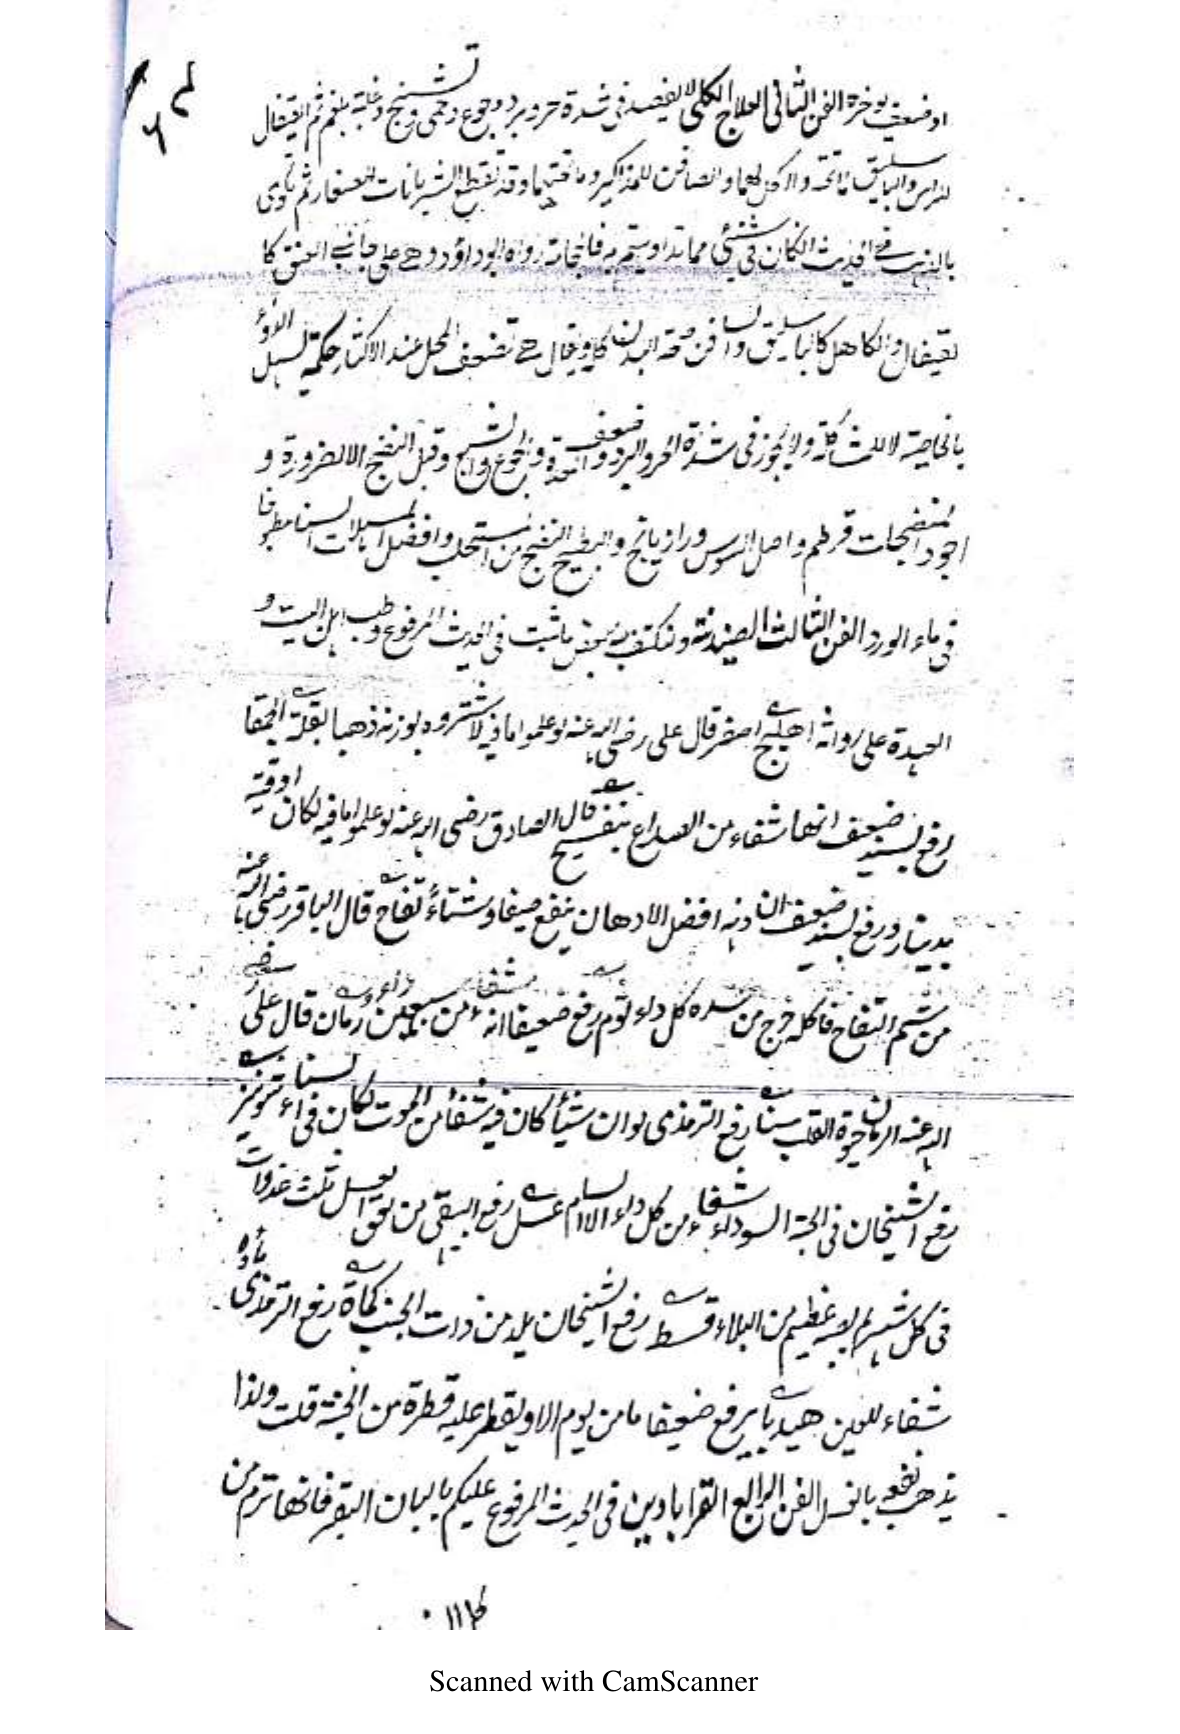 او ضعيف يوخره الفن الثانی العلاج الکلی لا يفصد فی شدة حر و برد و جوع و حمی و تشنج و غلبة بلغم ثم القيفال
للراس والباسليق لما تحته والاكحل لهما والصافن للمذاكير وما تحتهما وقد تقطع الشريانات الصغار ثم تكوى
بالذهب فی الحديث ان كان فی شیء مما تداويتم به فالحجامة رواه ابو داؤد وهی علی جانبی العنق كا
لقيفال والكاهل كالباسليق والساقين صحة البدن كله ويقال تضعف المحل عند الاكثار حكمة المسهل الدواء
بالخاصية لا للمشاكلة ولا يجوز فی شدة الحر والبرد وضعف المعدة والجوع والشبع وقبل النضج الا لضرورة و
اجود المنضجات قرطم واصل السوس ورازيانج والبطيخ النضيج من افضل المسهلات السنا مطبوخا
فی ماء الورد الفن الثالث الصيدنة ولنكتف ببعض ما ثبت فی الحديث المرفوع وطب اهل البيت و
العهدة علی رواته اهليلج اصفر قال علی رضی الله عنه لو علموا ما فيه لاشتروه بوزنه ذهبا بقلة الحمقا
رفع بسند ضعيف انها شفاء من الصداع بنفسج قال الصادق رضی الله عنه لو علموا ما فيه لكان اوقية
بدينار ورفع بسند ضعيف ان دهنه افضل الادهان ينفع صيفا وشتاءً تفاح قال الباقر رضی الله عنه
من شم التفاح فاكله خرج من جسده كل داء ثوم رفع ضعيفا انه شفاء من سبعين داء رمان قال علی رضی
الله عنه الرمان حيوة القلب سنا رفع الترمذی لو ان شيئا كان فيه شفاء من الموت لكان فی السنا شونيز
رفع الشيخان فی الحبة السوداء شفاء من كل داء الا السام عسل رفع البيهقی من لعق العسل ثلث غدوات
فی كل شهر لم يصبه عظيم من البلاء قسط رفع الشيخان يلد من ذات الجنب كماة رفع الترمذی ماؤه
شفاء للعين هندباء رفع ضعيفا ما من يوم الا ويقطر عليه قطرة من الجنة قلت ولذا
يذهب نفعه بالغسل الفن الرابع القراباذين فی الحديث المرفوع عليكم بالبان البقر فانها ترم من
Scanned with CamScanner